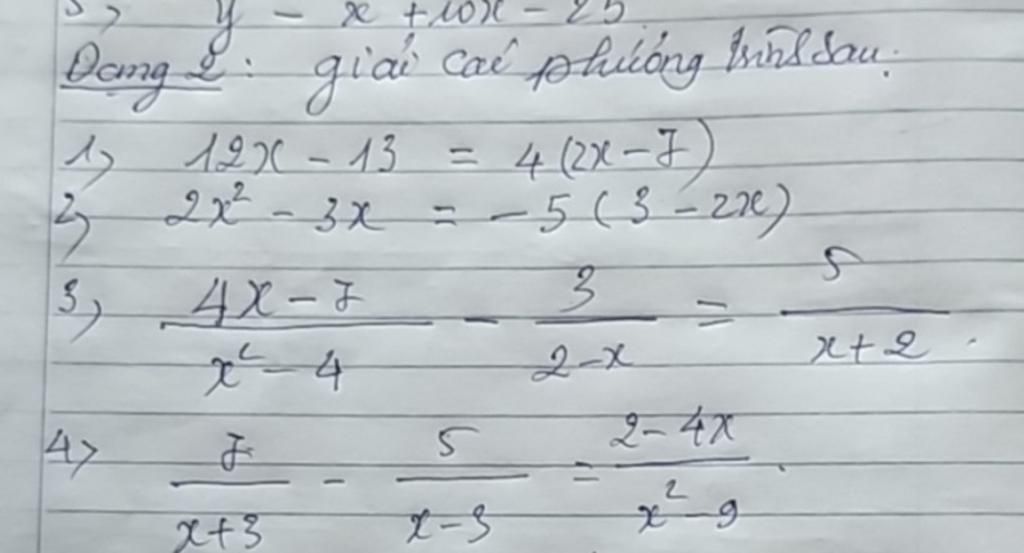 5> y - x + 10x - 25
Dạng 2: giải các phương trình sau:
1> 12x - 13 = 4(2x - 7)
2> 2x² - 3x = -5(3 - 2x)
3> (4x - 7)/(x² - 4) - 3/(2 - x) = 5/(x + 2).
4> 7/(x + 3) - 5/(x - 3) = (2 - 4x)/(x² - 9).